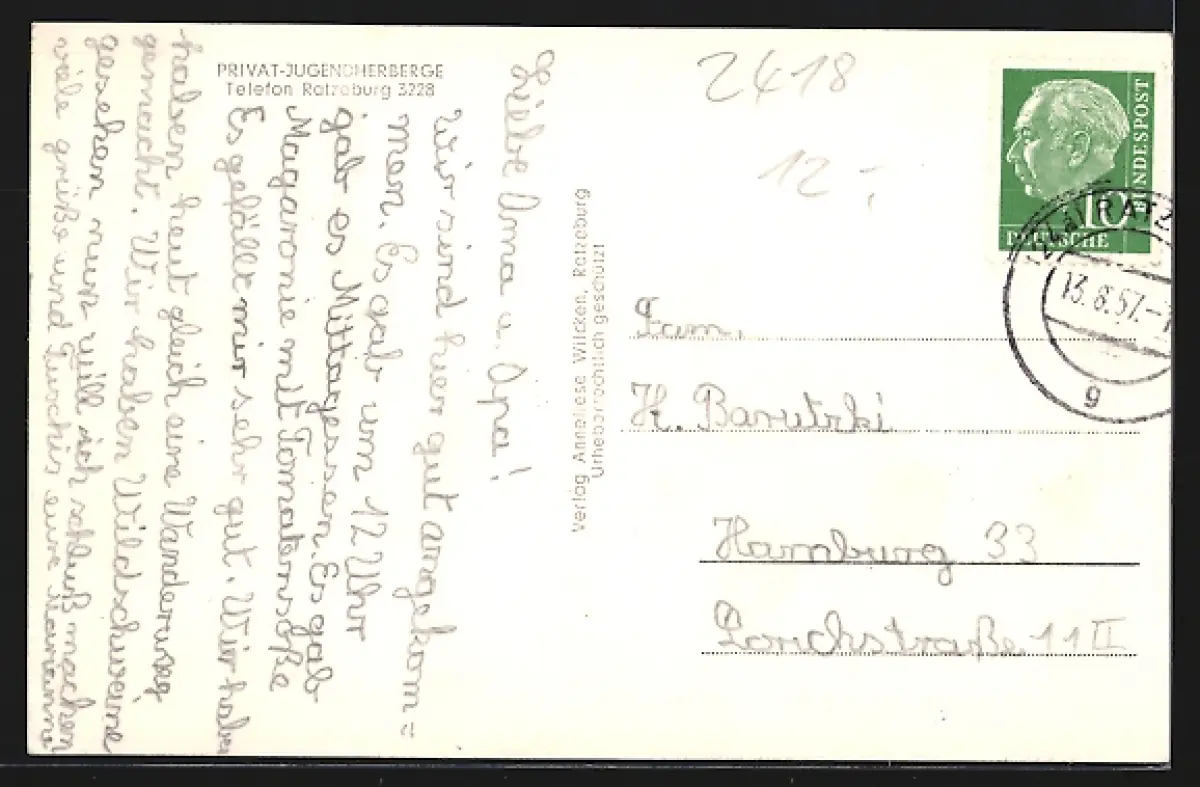 PRIVAT-JUGENDHERBERGE
Telefon Ratzeburg 3228
Liebe Oma u. Opa!
Wir sind hier gut angekom=
men. Es gab um 12 Uhr
gab es Mittagessen. Es gab
Magaronie mit Tomatensoße
Es gefällt mir sehr gut. Wir haben
haben heut gleich eine Wanderung
gemacht. Wir haben Wildschweine
gesehen nun will ich schluß machen
viele grüße und Tuschis eure Marianne
Verlag Anneliese Wilcken, Ratzeburg
Urheberrechtlich geschützt
2418
12,-
BUNDESPOST
10
DEUTSCHE
RATZ
13.8.57.-1
g
Fam.
H. Barutzki
Hamburg 33
Lorichstraße 11 II